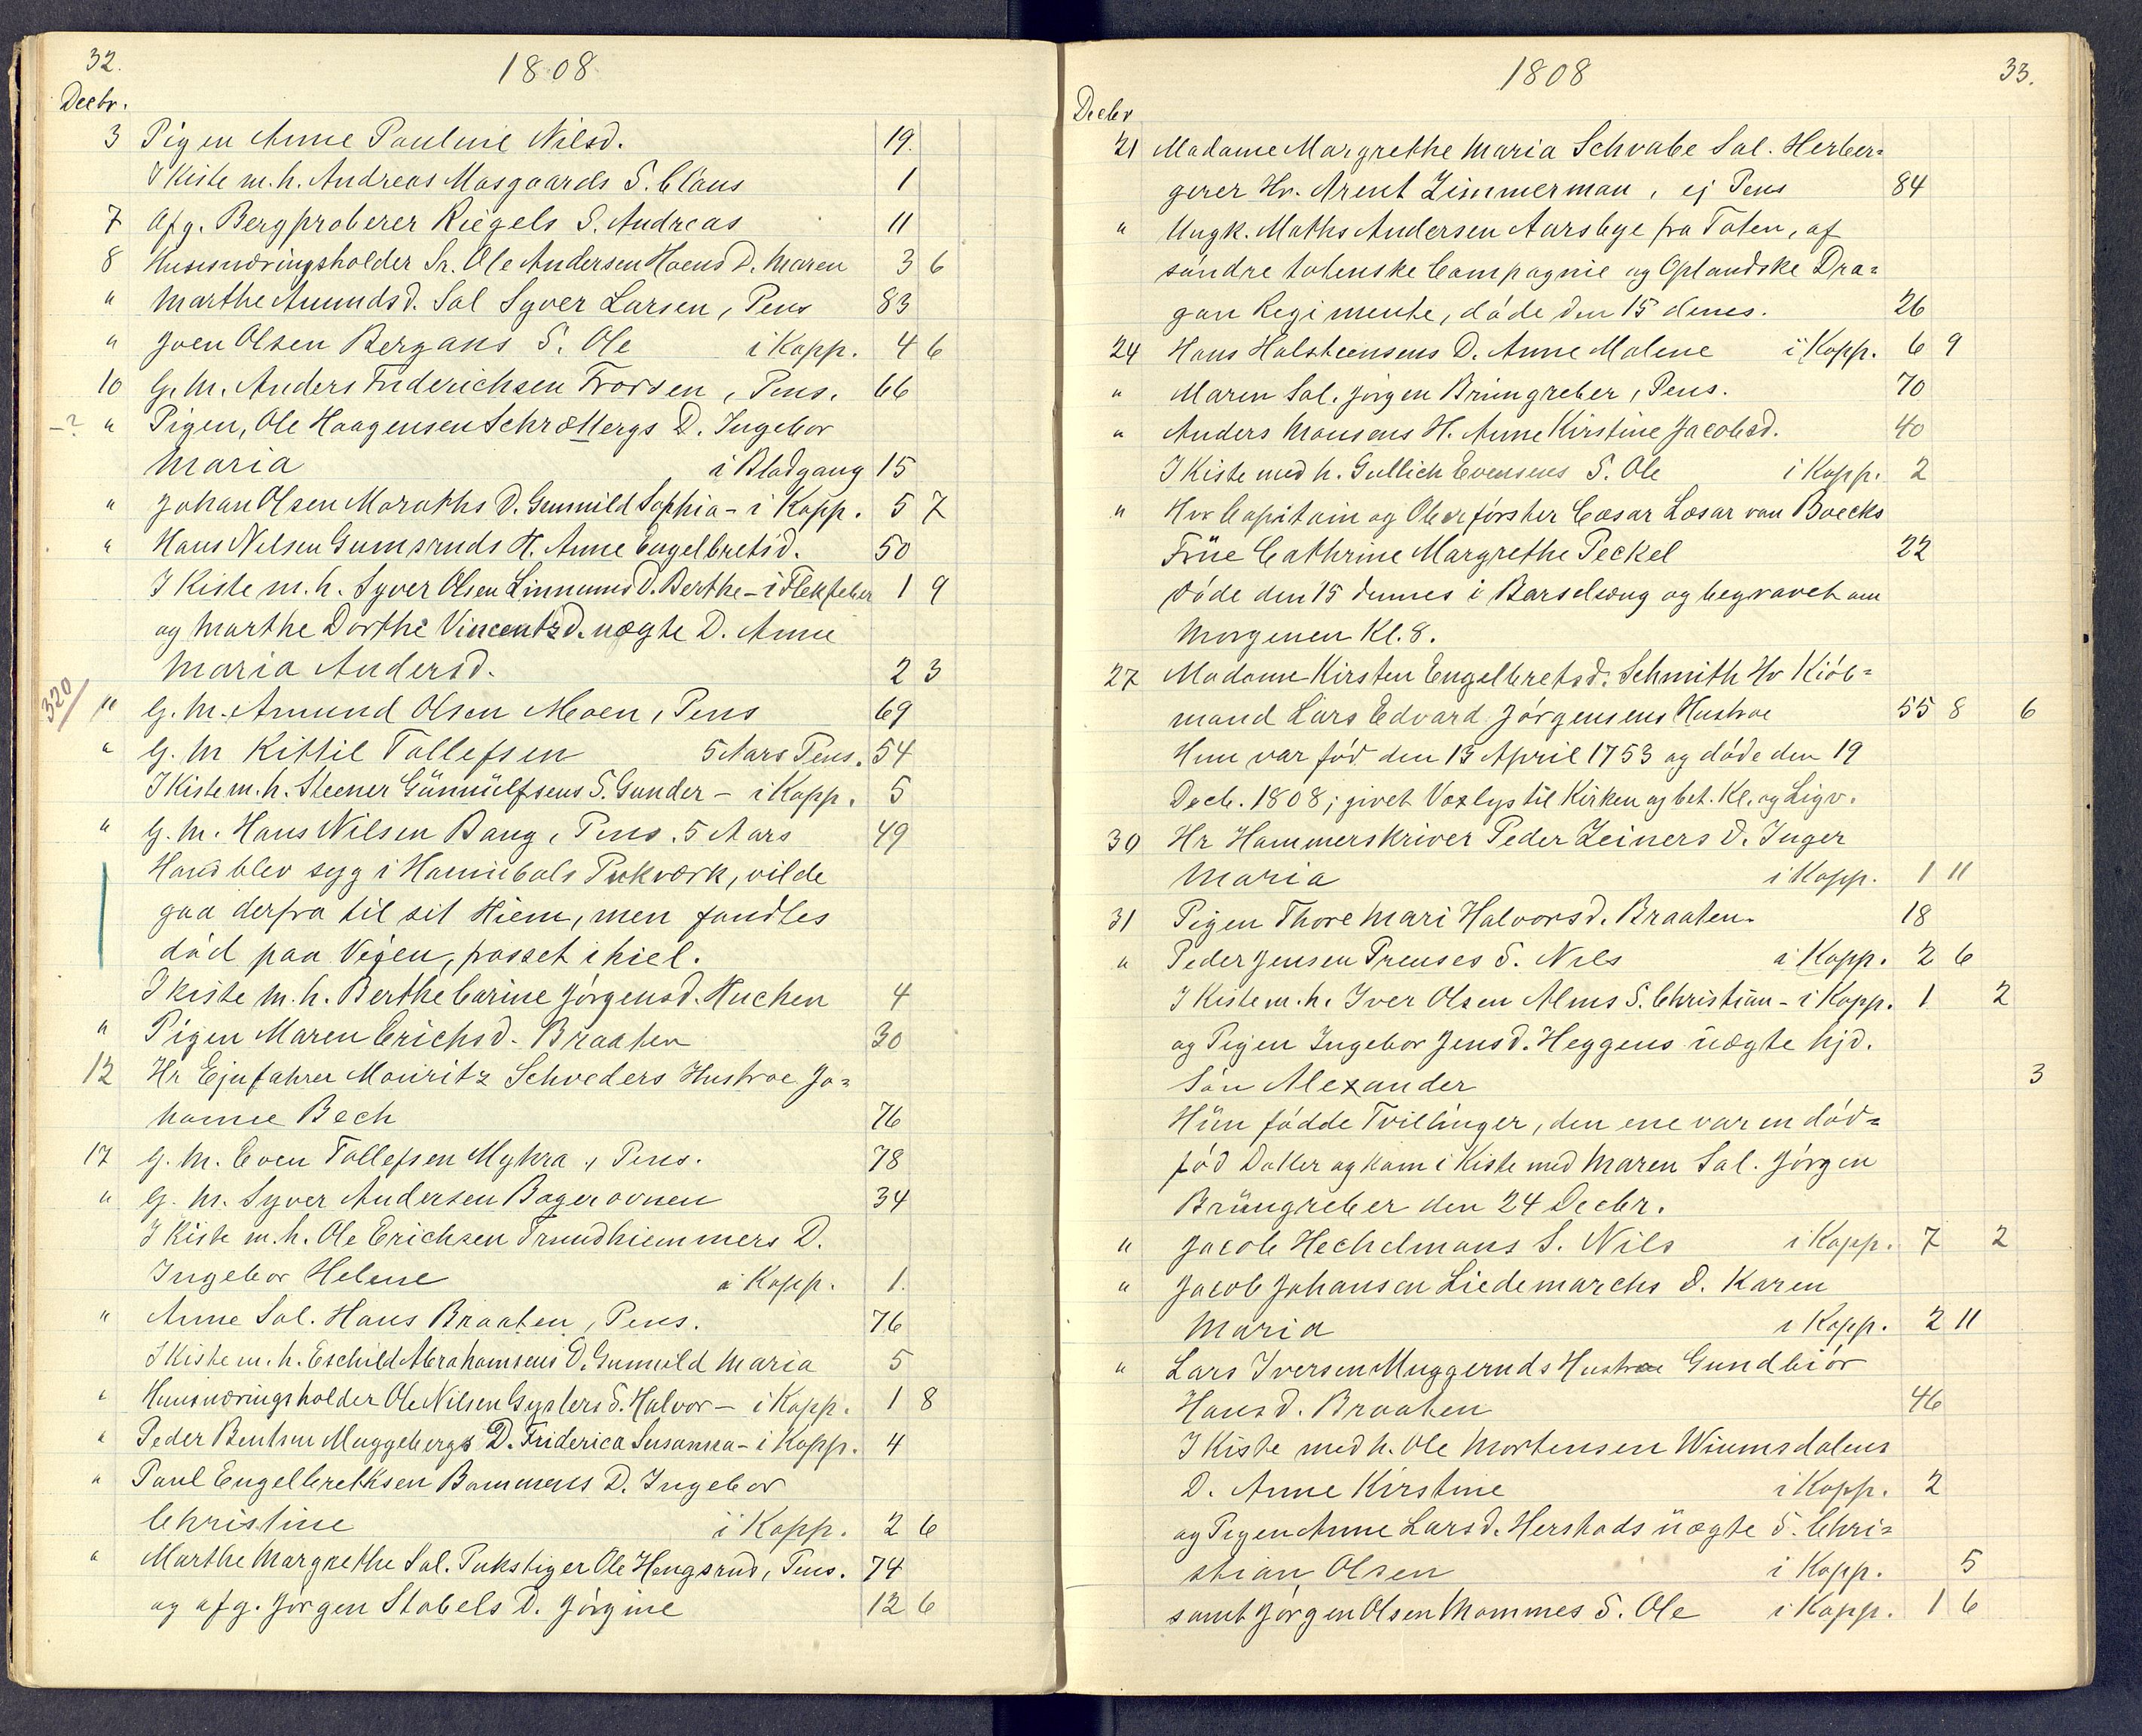 32.
1808
Decbr.
3 Pigen Anne Pauline Nilsd. 19.
I Kiste m. h. Andreas Masgaards S. Claus 1
7 Afg. Bergproberer Riegels S. Andreas 11
8 Huusnæringsholder Sr. Ole Andersen Hoens D. Maren 3 6
" Marthe Amundsd. Sal Syver Larsen, Pens 83
" Joen Olsen Bergans S. Ole i Kopp. 4 6
10 G. M. Anders Friderichsen Frorsen, Pens. 66
-? " Pigen, Ole Haagensen Schrøllbergs D. Ingebor
Maria i Blodgang 15
" Johan Olsen Moraths D. Gunnild Sophia - i Kopp. 5 7
" Hans Nelsen Gumsruds H. Anne Engelbretsd. 50
I Kiste m. h. Syver Olsen Linnerud D. Berthe - i Flekfeber 1 9
og Marthe Dorthe Vincentzd. uægte D. Anne
Maria Andersd. 2 3
320/ " G. M. Amund Olsen Moen, Pens 69
" G. M Kittil Tollefsen 5 Aars Pens. 54
I Kiste m. h. Steener Günnülfsens S. Gunder - i Kopp. 5
" G. M. Hans Nilsen Bang, Pens. 5 Aars 49
Hand blev syg i Hannibals Pukværk, vilde
gaa derfra til sit Hiem, men fandtes
død paa Vejen, frosset ihiel.
I kiste m. h. Berthe Carine Jørgensd. Huchen 4
" Pigen Maren Erichsd. Braaten 30
12 Hr Ejnfahrer Mouritz Schveders Hustroe Jo=
hanne Bech 76
17 G. M. Even Tollefsen Myhra, Pens. 78
" G. M. Syver Andersen Bagerovnen 34
I Kiste m. h. Ole Erichsen Trundhiemmers D.
Ingebor Helene i Kopp. 1.
" Anne Sal. Hans Braaten, Pens. 76
I Kiste m. h. Eschild Abrahamsens D. Gunnild Maria 5
" Huusnæringsholder Ole Nilsen Gyslers S. Halvor - i Kopp. 1 8
" Peder Bentsen Muggebergs D. Friderica Susanna - i Kopp. 4
" Paul Engelbrethsen Bommens D. Ingebor
Christine i Kopp. 2 6
" Marthe Margrethe Sal. Pukstiger Ole Hengsrud, Pens. 74
og afg. Jørgen Stabels D. Jørgine 12 6
1808
33.
Decbr
21 Madame Margrethe Maria Schvabe Sal. Herber=
gerer Hr. Arent Zimmerman, ej Pens 84
" Ungk. Maths Andersen Aarsbye fra Toten, af
søndre totenske Compagnie og Oplandske Dra=
gon Regimente, døde den 15 denes. 26
24 Hans Holsteensens D. Anne Malene i Kopp. 6 9
" Maren Sal. Jørgen Brüngreber, Pens. 70
" Anders Monsens H. Anne Kirstine Jacobsd. 40
I Kiste med h. Gullich Evensens S. Ole i Kopp. 2
" Hrr Capitain og Oberførster Cæsar Læsar von Boecks
Früe Cathrine Margrethe Peckel 22
døde den 15 dennes i Barselseng og begravet om
Morgenen Kl. 8.
27 Madame Kirsten Engelbretsd. Schmith Hr Kiøb=
mand Lars Edvard Jørgensens Hustroe 55 8 6
Hun var fød den 13 April 1753 og døde den 19
Decb. 1808; givet Voxlys til Kirken og bet. Kl. og Ligv.
30 Hr Hammerskriver Peder Zeiners D. Inger
Maria i Kopp. 1 11
31 Pigen Thore Mari Halvorsd. Braaten. 18
" Peder Jensen Preuses S. Nils i Kopp. 2 6
I Kiste m. h. Iver Olsen Alms S. Christian - i Kopp. 1 2
og Pigen Ingebor Jensd. Heggens uægte hjd.
Søn Alexander 3
Hün fødde Tvillinger, den ene var en død=
fød Datter og kom i Kiste med Maren Sal. Jørgen
Brüngreber den 24 Decbr.
" Jacob Hechelmans S. Nils i Kopp. 7 2
" Jacob Johansen Liedemarchs D. Karen
Maria i Kopp. 2 11
" Lars Iversen Muggeruds Hustroe Gundbiør
Hansd. Braaten 46
I Kiste med h. Ole Mortensen Wiumsdalens
D. Anne Kirstine i Kopp. 2
og Pigen Anne Larsd. Herstads uægte S. Chri=
stian Olsen i Kopp. 5
samt Jørgen Olsen Mommes S. Ole i Kopp. 1 6